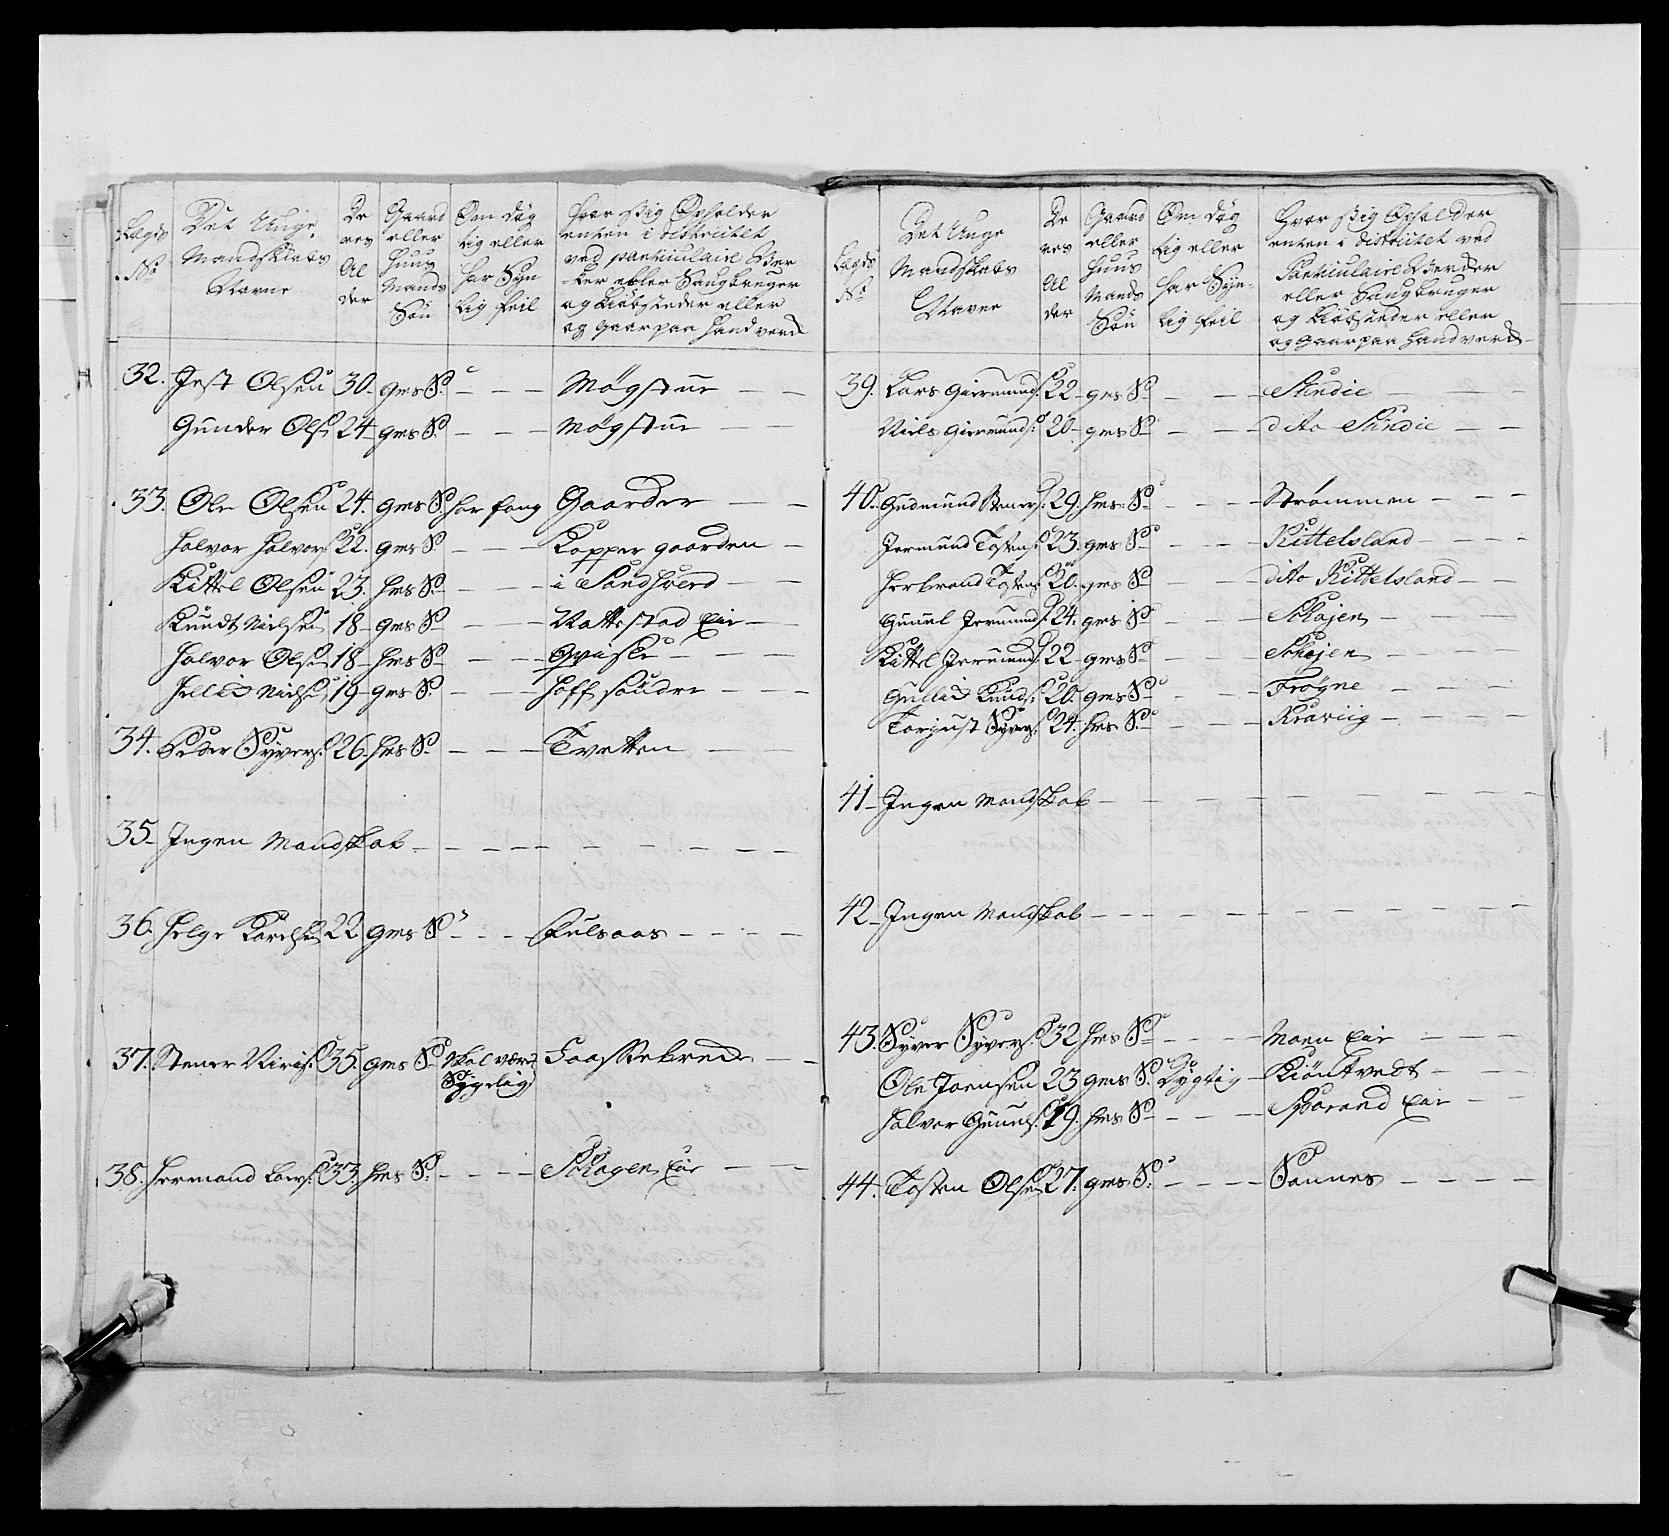 Lægds No
Det Unge Mandskabs Navne
De res Al der
Gaard eller Huus Mands Søn
Om døg tig eller har Syn lig feil
hvor Sig Opholder
enten i districtet
ved particulaire Ver
ker eller Saugbruger
og kiøbstæder eller
og gaar paa handverk
32. Jest Olsen 30. gms S. — — Møgstue — —
Gunder Olss 24 gms S. — — Møgstue — —
33. Ole Olsen 24. gms S. har fang Gaarder — —
Halvor Halvors: 22. gms S — — Kopper gaarden —
Kittel Olsen 23. hms S. — — i Sandhverd — —
Knudt Nielsen 18 gms S — — Rattestad Eie —
Halvor Olsen 18 hms S — — Qvisle — —
Nielsen 19 gms S. — — Hoff søndre — —
34. Peder Syvers: 26. hms S. — — Tvetten —
35. Ingen Mandskab — — —
36. Helge Karelsen 22. gms S — — Fulsaas — —
37. Stener 35. gms S. skal være Sygelig Faasstebrede — —
38. Hermand Lars: 33. hms S. — — Skagen Eie — —
Lægds No
Det Unge Mandskabs Navne
De res Al der
Gaard eller Huus Mands Søn
Om døg tig eller har Syn lig feil
Hvor Sig Opholder
enten i districtet ved
Particulaire Verker
eller Saugbruger
og kiøbstæder eller
og gaar paa handverk
39. Lars Giermunds: 22 gms S — — Skindie —
Niels Giermunds: 20. gms S — — dito Skindie — —
40. Gudmund Steners: 29. hms: S — — Strømmen — —
Jermund Tostens: 23. gms S — — Kittelsland — —
Herbrand Tostens: 20. gms S — — dito Kittelsland —
Gunul Jermunds: 24. gms S — — Skøjen — —
Kittel Jermunds: 22 gms S — — Skøjen — —
Gullick Knuds: 20. gms S — — Frøgne — —
Torjust Syvers: 24. hms S. — — Kraviig — —
41. Ingen Mandskab — — —
42. Ingen Mandskab — — —
43. Syver Syvers: 32 hms S — — Moen Eie — —
Ole Joensen 23 gms S. Dygtig Kiøntvedt — —
Halvor Gunuls: 19. hms S — — Skarand Eie — —
44. Tosten Olsen 27. gms S. — — Sannes — —